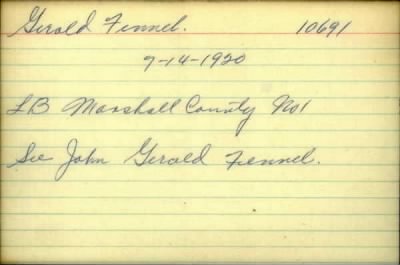 Gerald Fennel. 10691
7-14-1920
LB Marshall County No1
See John Gerald Fennel.